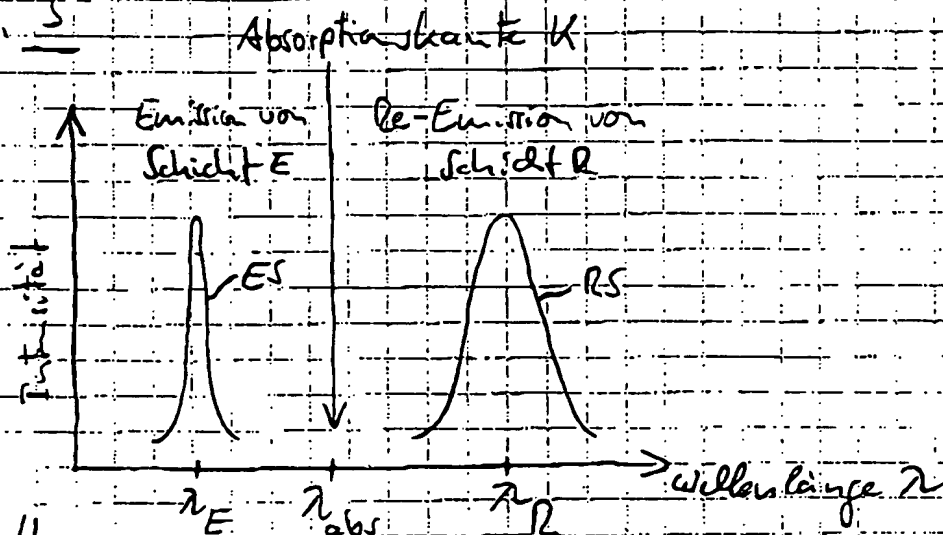 Absorptionskante K
Emission von
Schicht E
Re-Emission von
Schicht R
Intensität
ES
RS
Wellenlänge λ
λE
λabs
λR